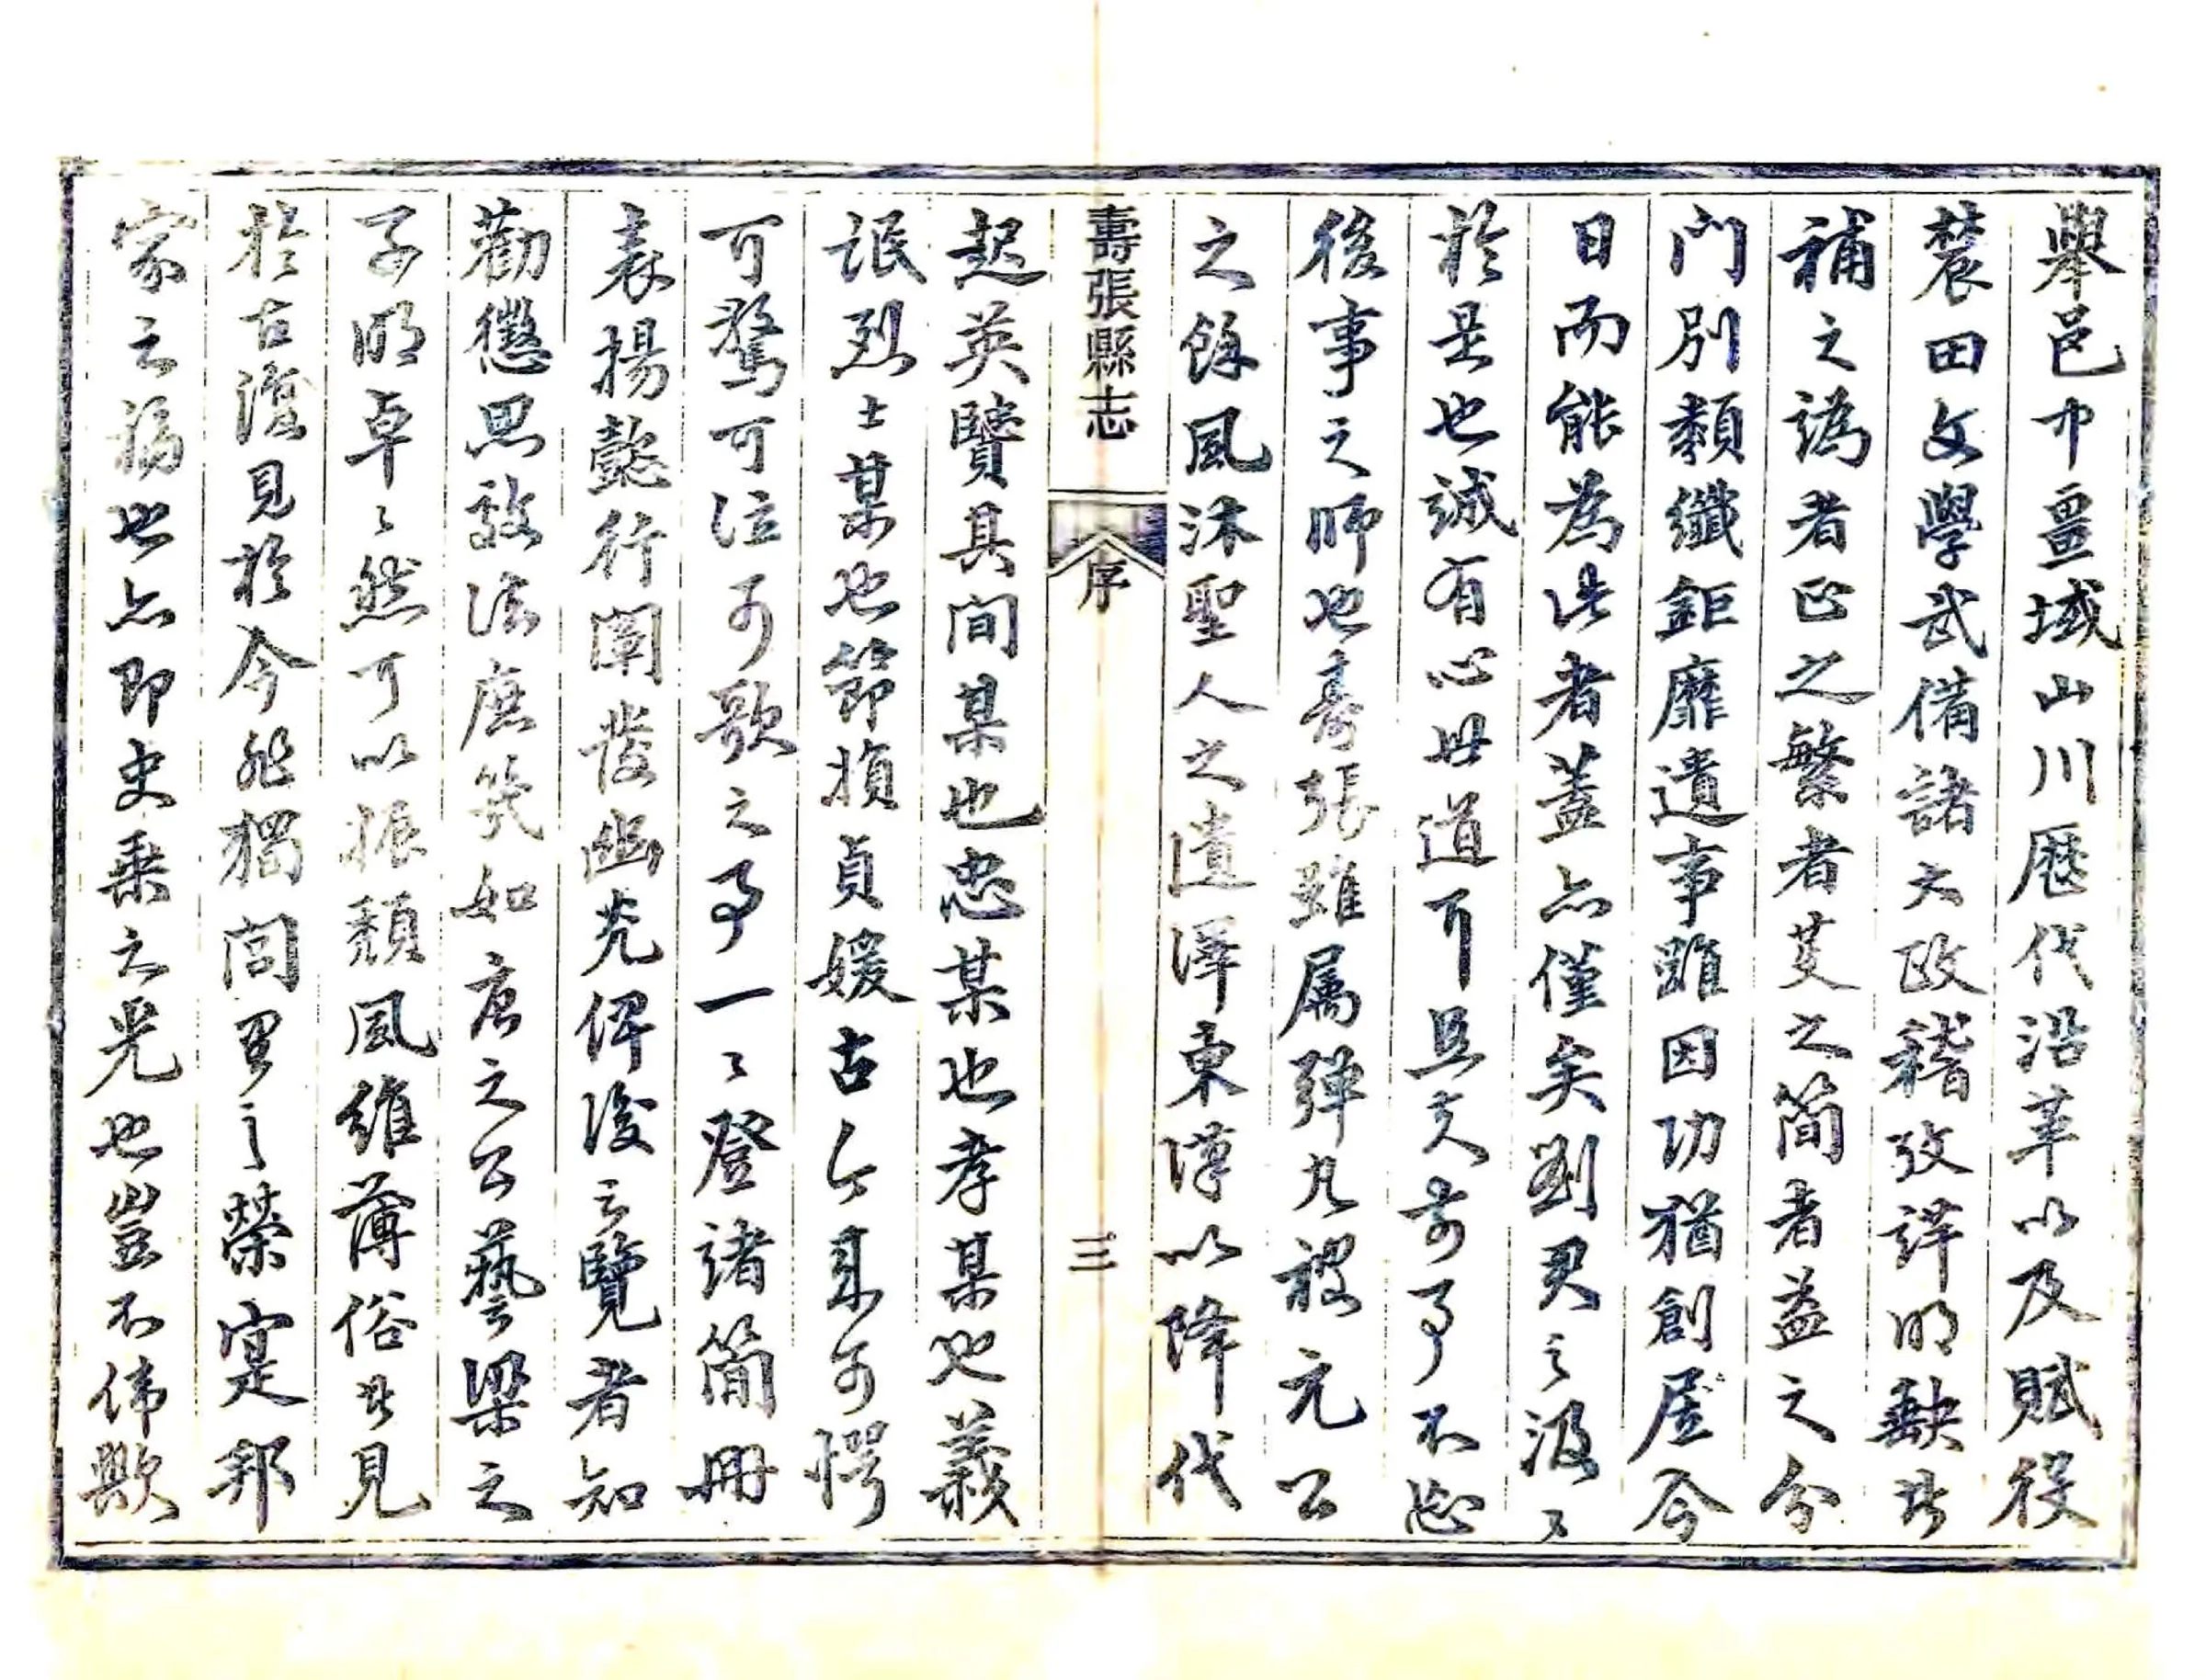 舉邑中畺域山川歷代沿革以及賦役
農田文學武備諸大政稽攷詳明缺者
補之譌者正之繁者芟之簡者益之分
門別類纖鉅靡遺事雖因功猶創居今
日而能為此者蓋亦僅矣劉君之汲〻
於是也誠有心世道耳且夫前事不忘
後事之師也壽張雖属彈丸被元公
之餘風沐聖人之遺澤東漢以降代
壽張縣志
序
三
起英賢其間某也忠某也孝某也義
氓烈士某也節損貞媛古今來可愕
可驚可泣可歌之事一〻登諸簡冊
表揚懿行闡發幽光俾後之覽者知
勸懲思效法庶幾如唐之公藝梁之
子明卓〻然可以振頹風維薄俗者見
於古復見於今非獨閭里之榮寔邦
家之福也亦即史乘之光也豈不偉歟